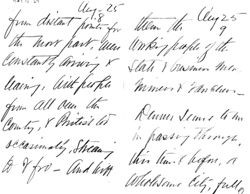 Aug-25
8
from distant points for
the most part, were
constantly arriving &
leaving. With people
from all over the
County, & British Co
occasionally, streaming
to & fro — And with
Aug 25
9
them the
working people of the
State & business men
miners & ranchers —
Denver seems to me
in passing through,
this time & before, a
wholesome City, full